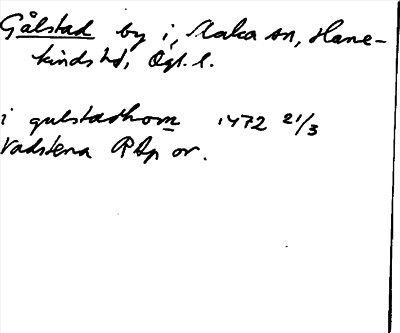 Gålstad by i, Slaka sn, Hane-
kinds hd, Ögl. l.
i gulstadhom 1472 21/3
Vadstena RAp or.